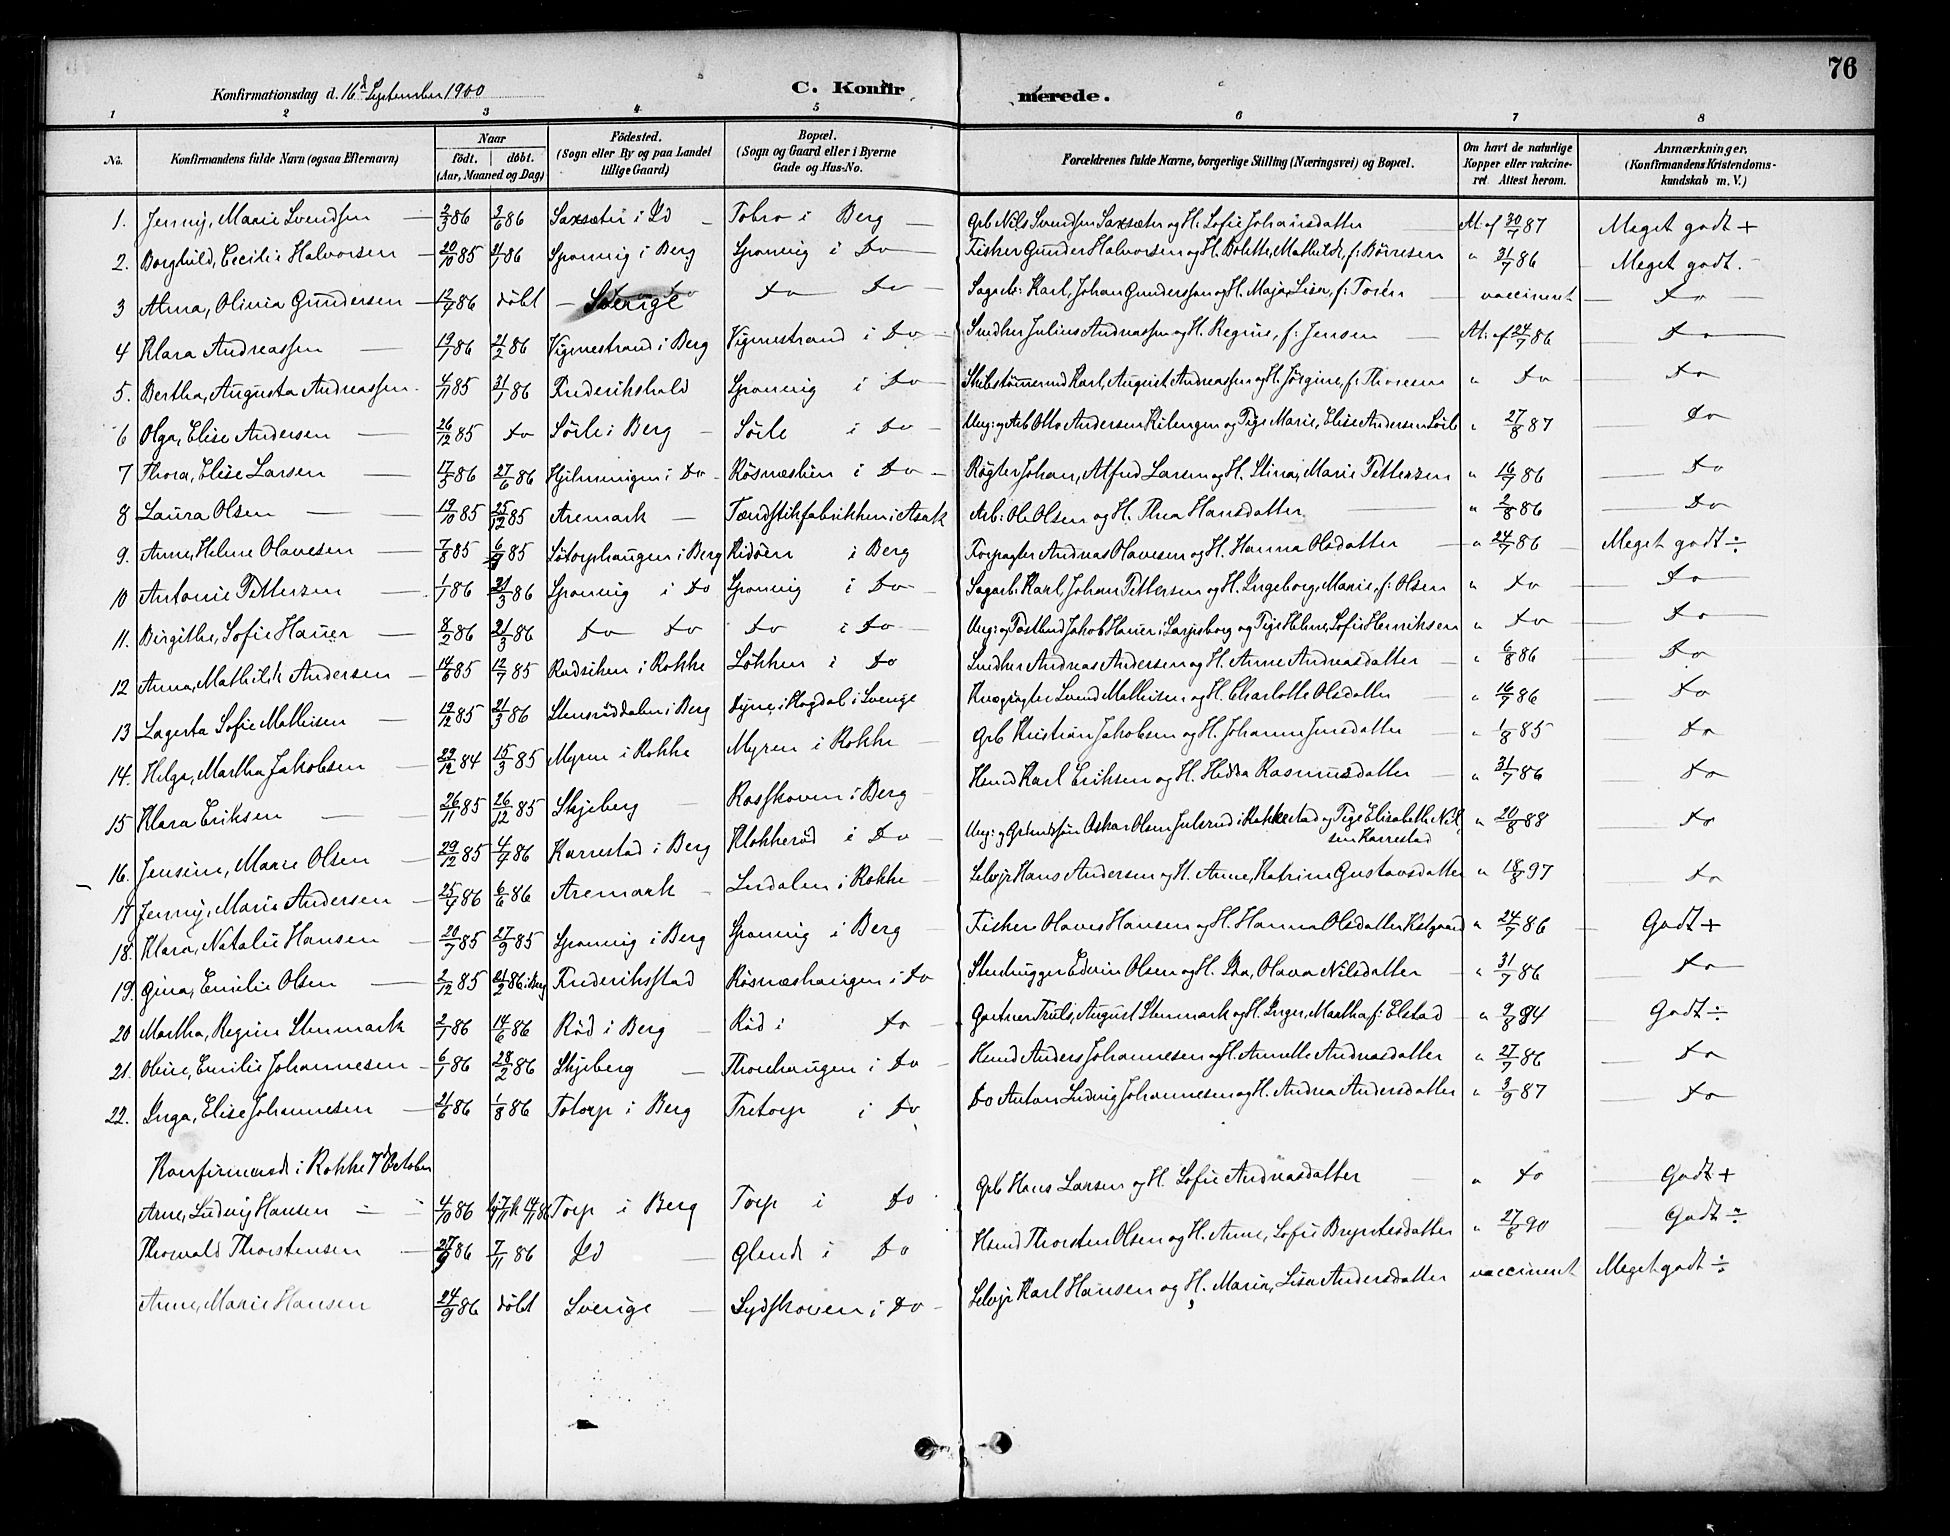 76
Konfirmationsdag d. 16d September 1900 C. Konfirmerede.
1 2 3 4 5 6 7 8
No. Konfirmandens fulde Navn (ogsaa Efternavn) Naar födt. döbt. (Aar, Maaned og Dag) Födested. (Sogn eller By og paa Landet tillige Gaard) Bopæl. (Sogn og Gaard eller i Byerne Gade og Hus-No. Forældrenes fulde Navne, borgerlige Stilling (Næringsvei) og Bopæl. Om havt de naturlige Kopper eller vakcineret. Attest herom. Anmærkninger, (Konfirmandens Kristendomskundskab m. V.)
1. Jenny, Marie Svendsen 2/3 86 2/6 86 Saxsæter i Id Tobro i Berg Grb Nils Svendsen Saxsæter og H. Sofie Johansdatter At. af 30/7 87 Meget godt +
2. Borghild, Cecilie Halvorsen 20/10 85 4/7 86 Sponvig i Berg Sponvig i Do Fisker Gunder Halvorsen og H. Bolette, Mathilde, f: Börresen " 31/7 86 Meget godt.
3 Alma, Olivia Gundersen 12/7 86 döbt Sverige Do Do Sagarb: Karl, Johan Gundersson og H. Maja, Lisa, f: Torén vaccineret Do
4 Klara Andreassen 19/1 86 21/2 86 Vignestrand i Berg Vignestrand i Do Snedker Julius Andreassen og H. Regine, f: Jensen At. af 24/7 86 Do
5. Bertha, Augusta Andreassen 4/11 85 31/1 86 Frederikshald Sponvig i Do Skibstömmermd Karl, August Andreassen og H. Jörgine, f: Thoresen " Do Do
6 Olga, Elise Andersen 26/12 85 Do Sörle i Berg Sörle i Do Ung: og Arb Otto Andersen Kilengen og Pige Marie, Elise Andersen Sörle " 27/8 87 Do
7 Thora, Elise Larsen 17/3 86 27/6 86 Hjelmungen i Do Rösnæslien i Do Rögter Johan, Alfred Larsen og H. Stina, Marie Pettersen " 16/7 86 Do
8 Laura Olsen 19/10 85 25/12 85 Aremark Tændstikfabrikken i Asak Arb: Ole Olsen og H. Thea Hansdatter " 2/8 86 Do
9. Anne, Helene Olavesen 7/8 85 6/9 85 Sötorphaugen i Berg Ridöen i Berg Forpagter Andreas Olavesen og H. Hanna Olsdatter " 24/7 86 Meget godt ÷
10 Antonie Pettersen 1/1 86 21/3 86 Sponvig i Do Sponvig i Do Sagarb: Karl Johan Pettersen og H. Ingeborg, Marie, f: Olsen " Do Do
11. Birgithe, Sofie Hauer 8/2 86 21/3 86 Do Do Do i Do Ung: og Postbud Jakob Hauer i Sarpsborg og Pige Helene, Sofie Henriksen " Do Do
12 Anna, Mathilde Andersen 14/6 85 12/7 85 Rødseken i Rokke Løkken i Do Snedker Andreas Andersen og H. Anne Andreasdatter " 6/8 86 Do
13 Lagerta Sofie Mathisen 19/12 85 21/3 86 Stensröddalen i Berg Dyne, i Skogdal i Sverige Kvægrøgter Svend Mathisen og H. Charlotte Olsdatter " 16/7 86 Do
14. Helga, Martha Jakobsen 22/12 84 15/3 85 Myren i Rokke Myren i Rokke Grb Kristian Jakobsen og H. Johanne Jensdatter " 1/8 85 Do
15 Klara Eriksen 26/11 85 26/12 85 Skjeberg Rosskoven i Berg Hmd Karl Eriksen og H. Hedda Rasmusdatter " 31/7 86 Do
16. Jensine, Marie Olsen 29/12 85 4/7 86 Karrestad i Berg Klokkeröd i Do Ung: og Grbmdssön Oskar Olsen Julsrud i Rakkestad og Pige Elisabeth Nilsen Karrestad " 20/8 88 Do
17 Jenny, Marie Andersen 25/4 86 6/6 86 Aremark Lerdalen i Rokke Selvejr Hans Andersen og H. Anne, Katrine Gustavsdatter " 18/8 97 Do
18. Klara, Natalie Hansen 20/7 85 27/9 85 Sponvig i Berg Sponvig i Berg Fisker Olaves Hansen og H. Hanna Olsdatter Kstgaard " 24/7 86 Godt +
19. Gina, Emilie Olsen 2/12 85 21/2 86 i Berg Frederiksstad Rösnæshaugen i Do Stenhugger Edvin Olsen og H. Ida, Olava Nilsdatter " 31/7 86 Do
20 Martha, Regine Stenmark 2/1 86 14/6 86 Röd i Berg Röd i Do Gartner Truls, August Stenmark og H. Inger, Martha f: Elstad " 9/8 94 Godt ÷
21. Oline, Emilie Johannesen 6/1 86 28/2 86 Skjeberg Thorehaugen i Do Hmd Anders Johannesen og H. Annette Andreasdatter " 27/7 86 Do
22. Inga, Elise Johannesen 21/6 86 1/8 86 Totorp i Berg Tretorp i Do Do Anton Ludvig Johannesen og H. Andrea Andersdatter " 3/9 87 Do
Konfirmerede i Rokke 7d October
Arne, Ludvig Hansen 4/10 86 14/11 86 Torp i Berg Torp i Do Grb Hans Larsen og H. Sofie Andreasdatter " Do Godt +
Thorvald Thorstensen 27/9 86 7/11 86 Id Glende i Do Hmd Thorsten Olsen og H. Anne, Sofie Bryntesdatter " 27/6 90 Godt ÷
Anne, Marie Hansen 24/9 86 döbt Sverige Sydskoven i Do Selvejr Karl Hansen og H. Maria, Lisa Andersdatter vaccineret Meget godt ÷